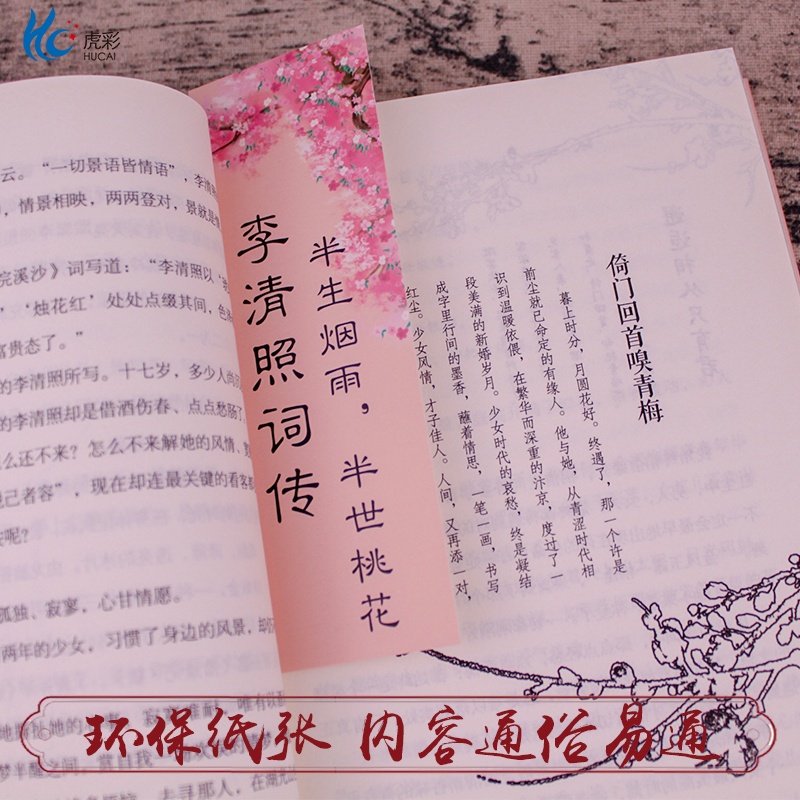 虎彩
HUCAI
云。“一切景语皆情语”，李清
，情景相映，两两登对，景就是
浣溪沙》词写道：“李清照以‘
’‘烛花红’处处点缀其间，色
富贵态了。”
的李清照所写。十七岁，多少人
的李清照却是借酒伤春、点点愁肠
么还不来？怎么不来解她的风情、
己者容”，现在却连最关键的看客
呢？
孤独、寂寥，心甘情愿。
两年的少女，习惯了身边的风景，却
李清照词传
半生烟雨，半世桃花
倚门回首嗅青梅
暮上时分，月圆花好。终遇了，那一个许是
前尘就已命定的有缘人。他与她，从青涩时代相
识到温暖依偎，在繁华而深重的汴京，度过了一
段美满的新婚岁月。少女时代的哀愁，终是凝结
成字里行间的墨香，蘸着情思，一笔一画，书写
红尘。少女风情，才子佳人。人间，又再添一对，
环保纸张 内容通俗易通